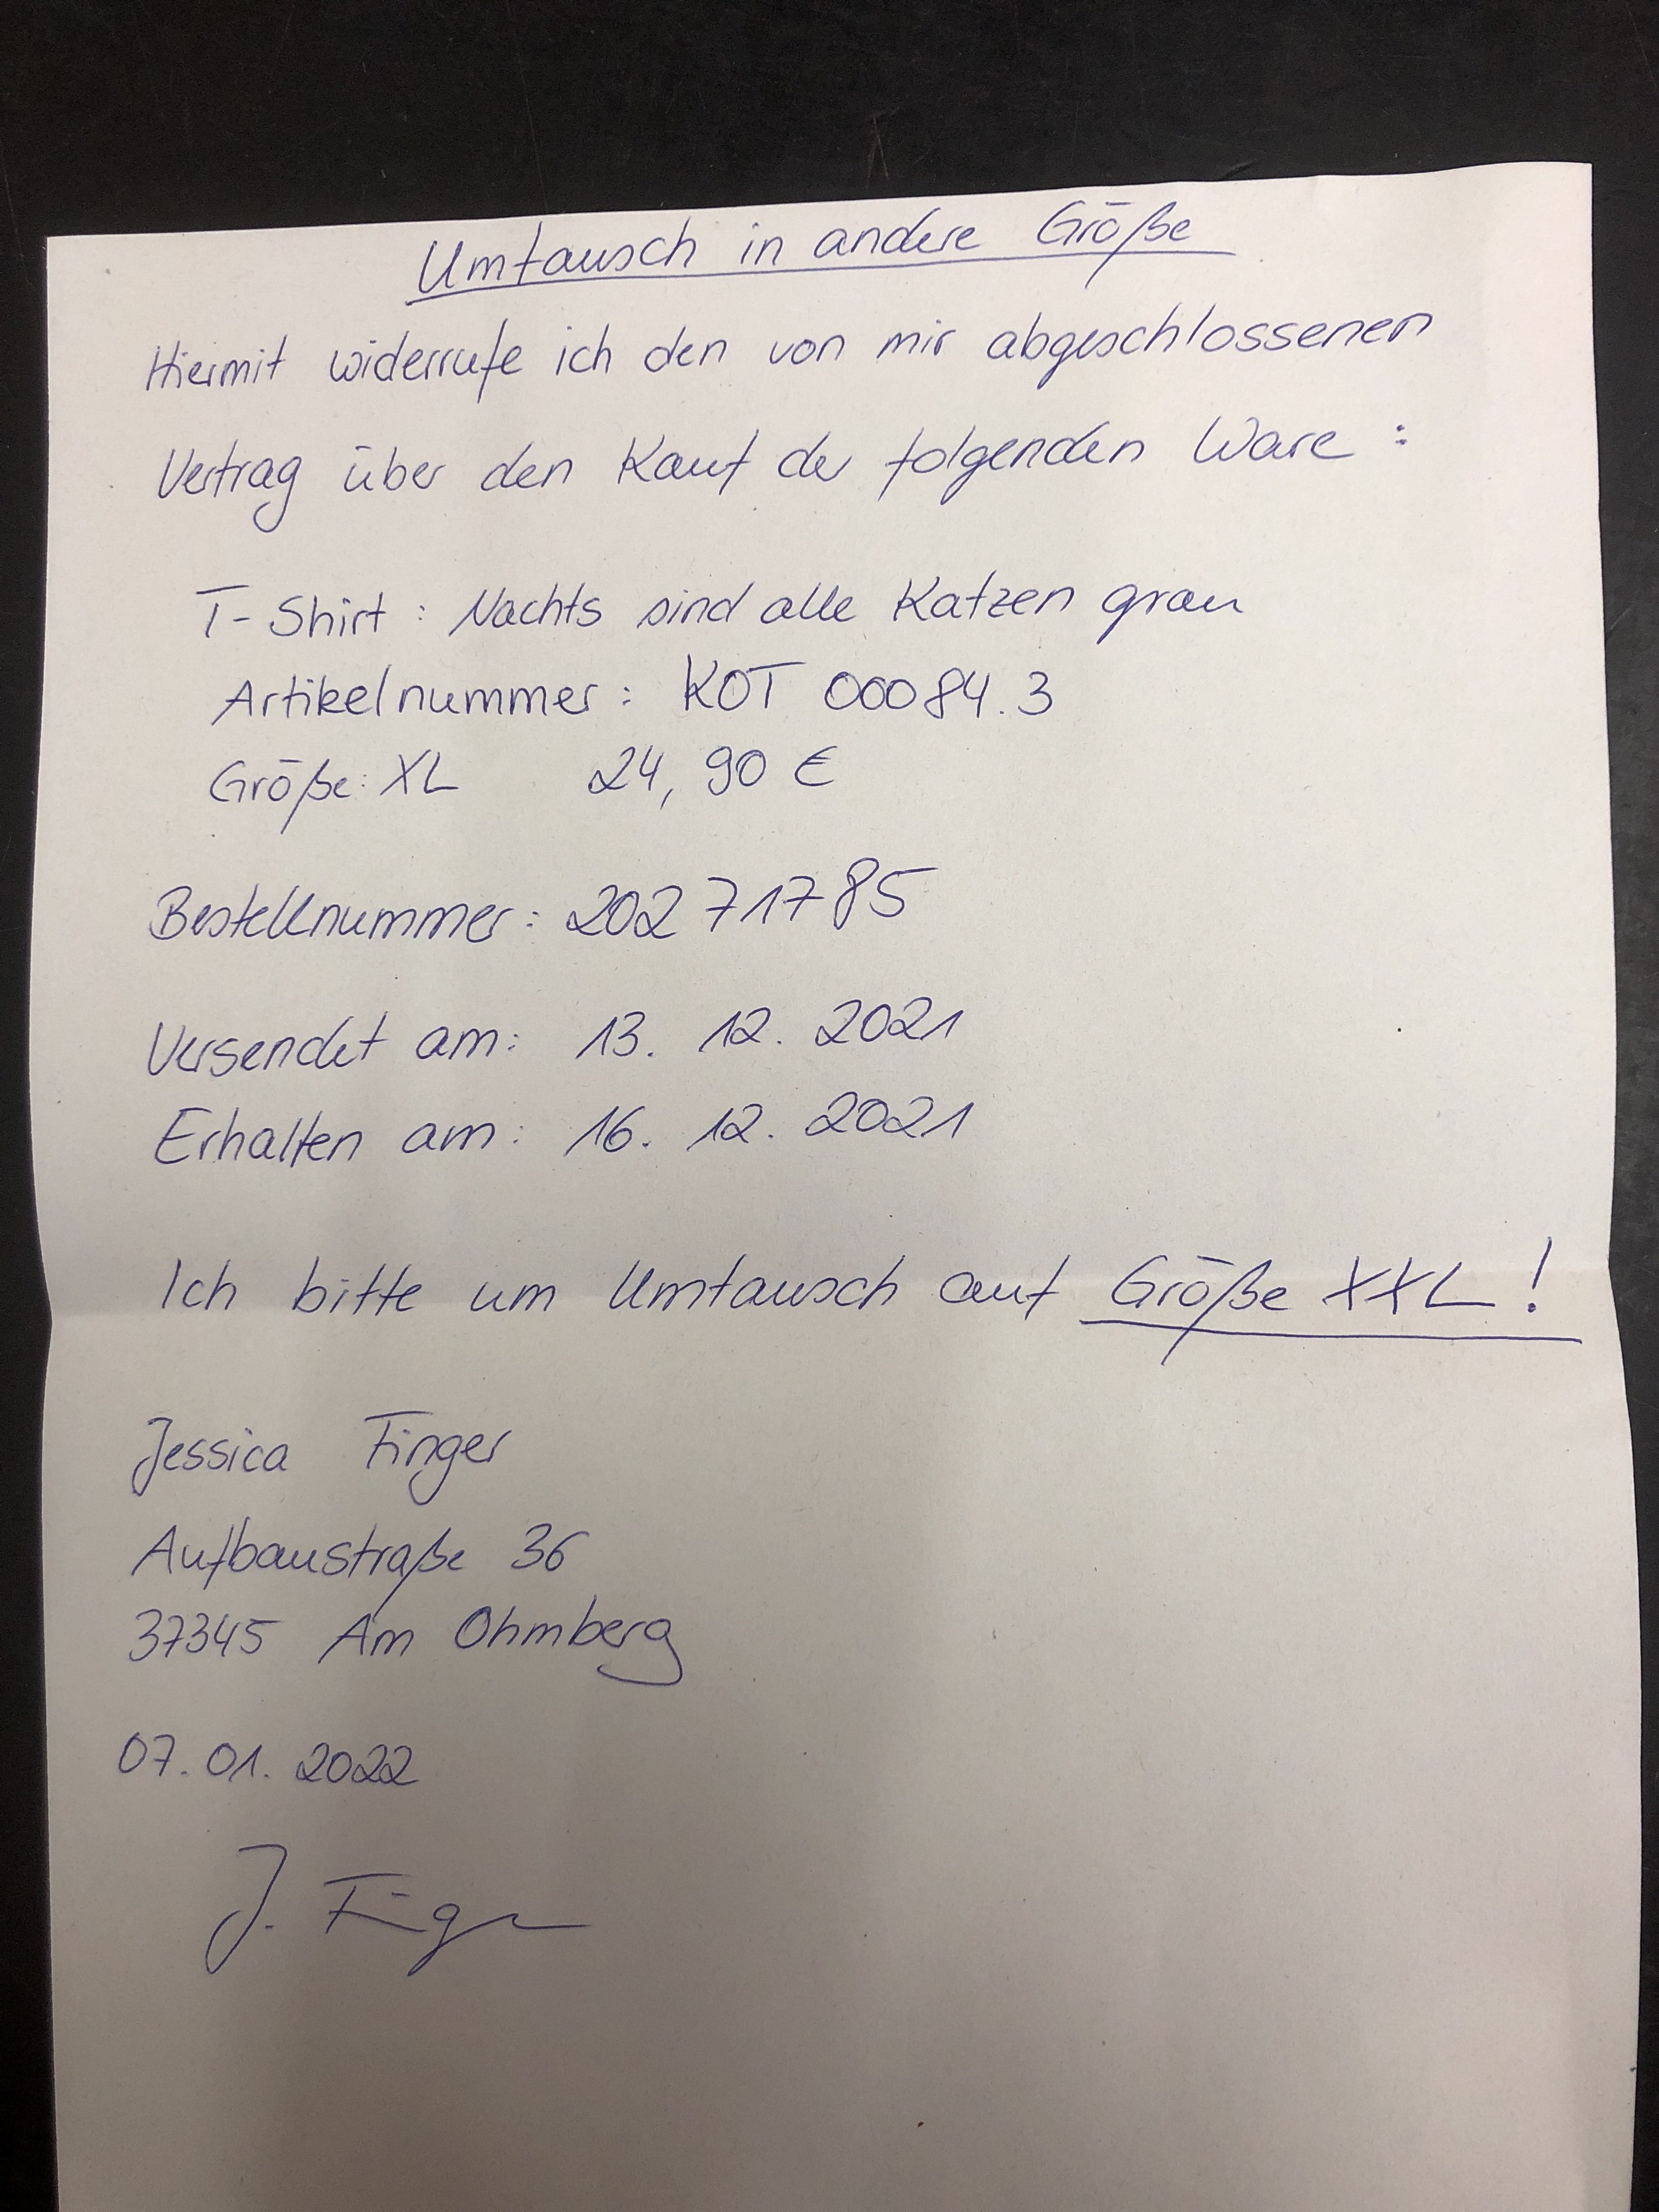 Umtausch in andere Größe
Hiermit widerrufe ich den von mir abgeschlossenen
Vertrag über den Kauf der folgenden Ware :
T-Shirt : Nachts sind alle Katzen grau
Artikelnummer : KOT 00084.3
Größe: XL 24,90 €
Bestellnummer: 202 717 85
Versendet am: 13. 12. 2021
Erhalten am: 16. 12. 2021
Ich bitte um Umtausch auf Größe XXL !
Jessica Finger
Aufbaustraße 36
37345 Am Ohmberg
07.01.2022
J. Finger